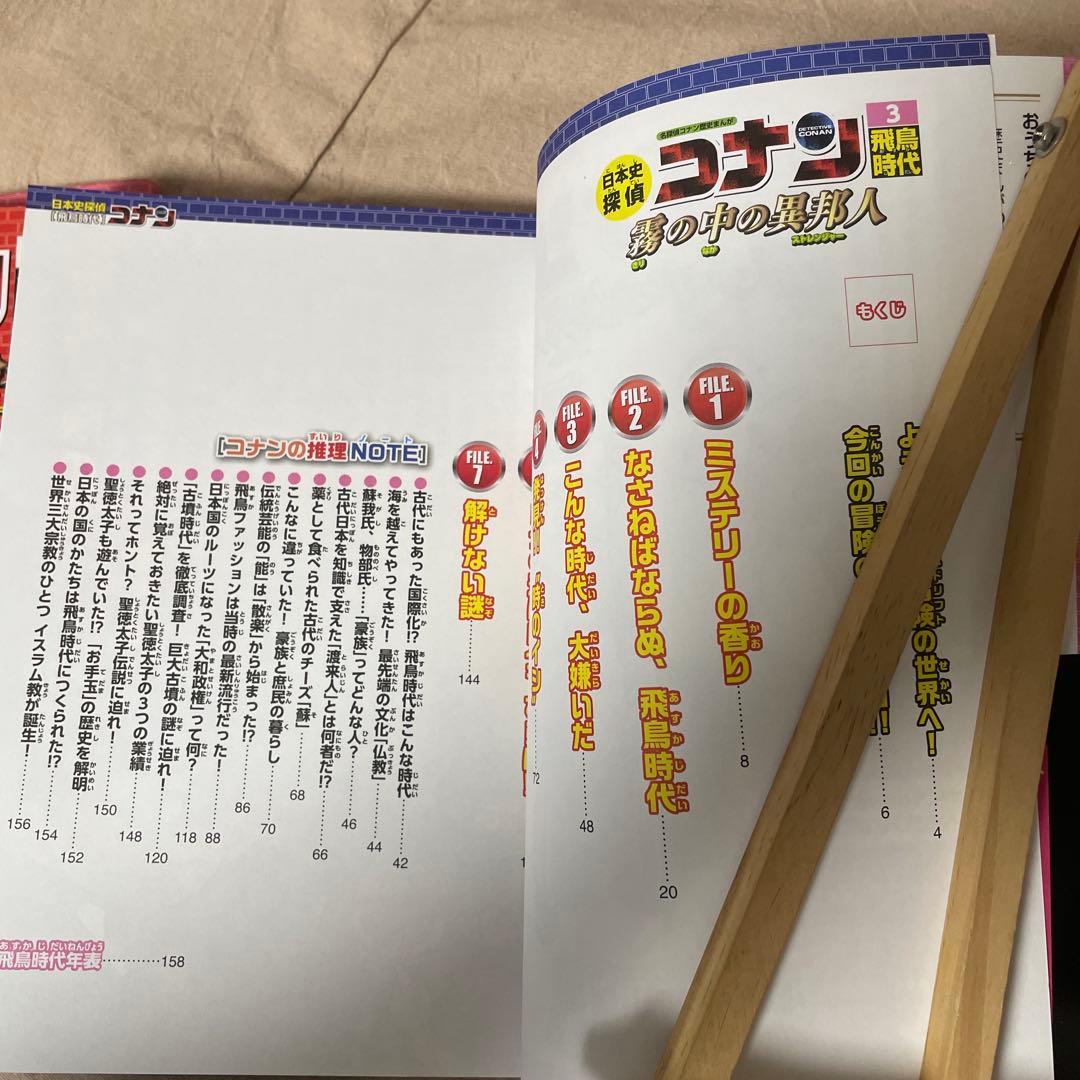 名探偵コナン歴史まんが
日本史探偵
コナン
DETECTIVE CONAN
3
飛鳥時代
霧の中の異邦人
きり
なか
ストレンジャー
もくじ
険の世界へ!
4
今回の冒険の
6
FILE.1
ミステリーの香り
8
FILE.2
なさねばならぬ、飛鳥時代
20
FILE.3
こんな時代、大嫌いだ
48
72
日本史探偵
コナン
[飛鳥時代]
FILE.7
解けない謎
144
[コナンの推理NOTE]
古代にもあった国際化!? 飛鳥時代はこんな時代
42
海を越えてやってきた! 最先端の文化「仏教」
44
蘇我氏、物部氏……「豪族」ってどんな人?
46
古代日本を知識で支えた「渡来人」とは何者だ!?
66
薬として食べられた古代のチーズ「蘇」
68
こんなに違っていた! 豪族と庶民の暮らし
70
伝統芸能の「能」は「散楽」から始まった!?
86
飛鳥ファッションは当時の最新流行だった!
88
日本国のルーツになった「大和政権」って何?
118
「古墳時代」を徹底調査! 巨大古墳の謎に迫れ!
120
絶対に覚えておきたい聖徳太子の3つの業績
148
それってホント? 聖徳太子伝説に迫れ!
150
聖徳太子も遊んでいた!? 「お手玉」の歴史を解明
152
日本の国のかたちは飛鳥時代につくられた!?
154
世界三大宗教のひとつ イスラム教が誕生!
156
飛鳥時代年表
158